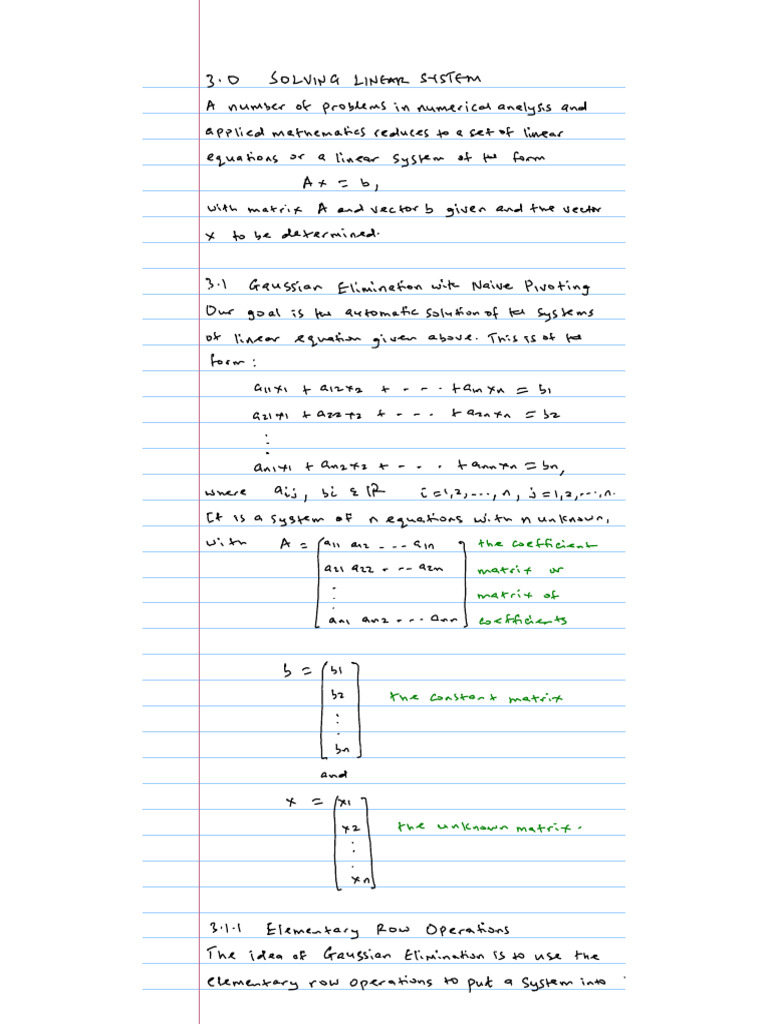 3.0 SOLVING LINEAR SYSTEM
A number of problems in numerical analysis and
applied mathematics reduces to a set of linear
equations or a linear system of the form
Ax = b,
with matrix A and vector b given and the vector
x to be determined.
3.1 Gaussian Elimination with Naive Pivoting
Our goal is the automatic solution of the systems
of linear equation given above. This is of the
form:
a11x1 + a12x2 + - - - . +a1nxn = b1
a21x1 + a22x2 + - - . + a2nxn = b2
⋮
an1x1 + an2x2 + - - . + annxn = bn,
where aij, bi ∈ ℝ i=1,2,...,n, j=1,2,...,n.
It is a system of n equations with n unknown,
with A = [a11 a12 - - - a1n] the coefficient
[a21 a22 - -- a2n] matrix or
⋮ matrix of
[an1 an2 --- ann] coefficients
b = [b1
b2 the constant matrix
⋮
bn]
and
x = [x1
x2 the unknown matrix.
⋮
xn]
3.1.1 Elementary Row Operations
The idea of Gaussian Elimination is to use the
elementary row operations to put a system into